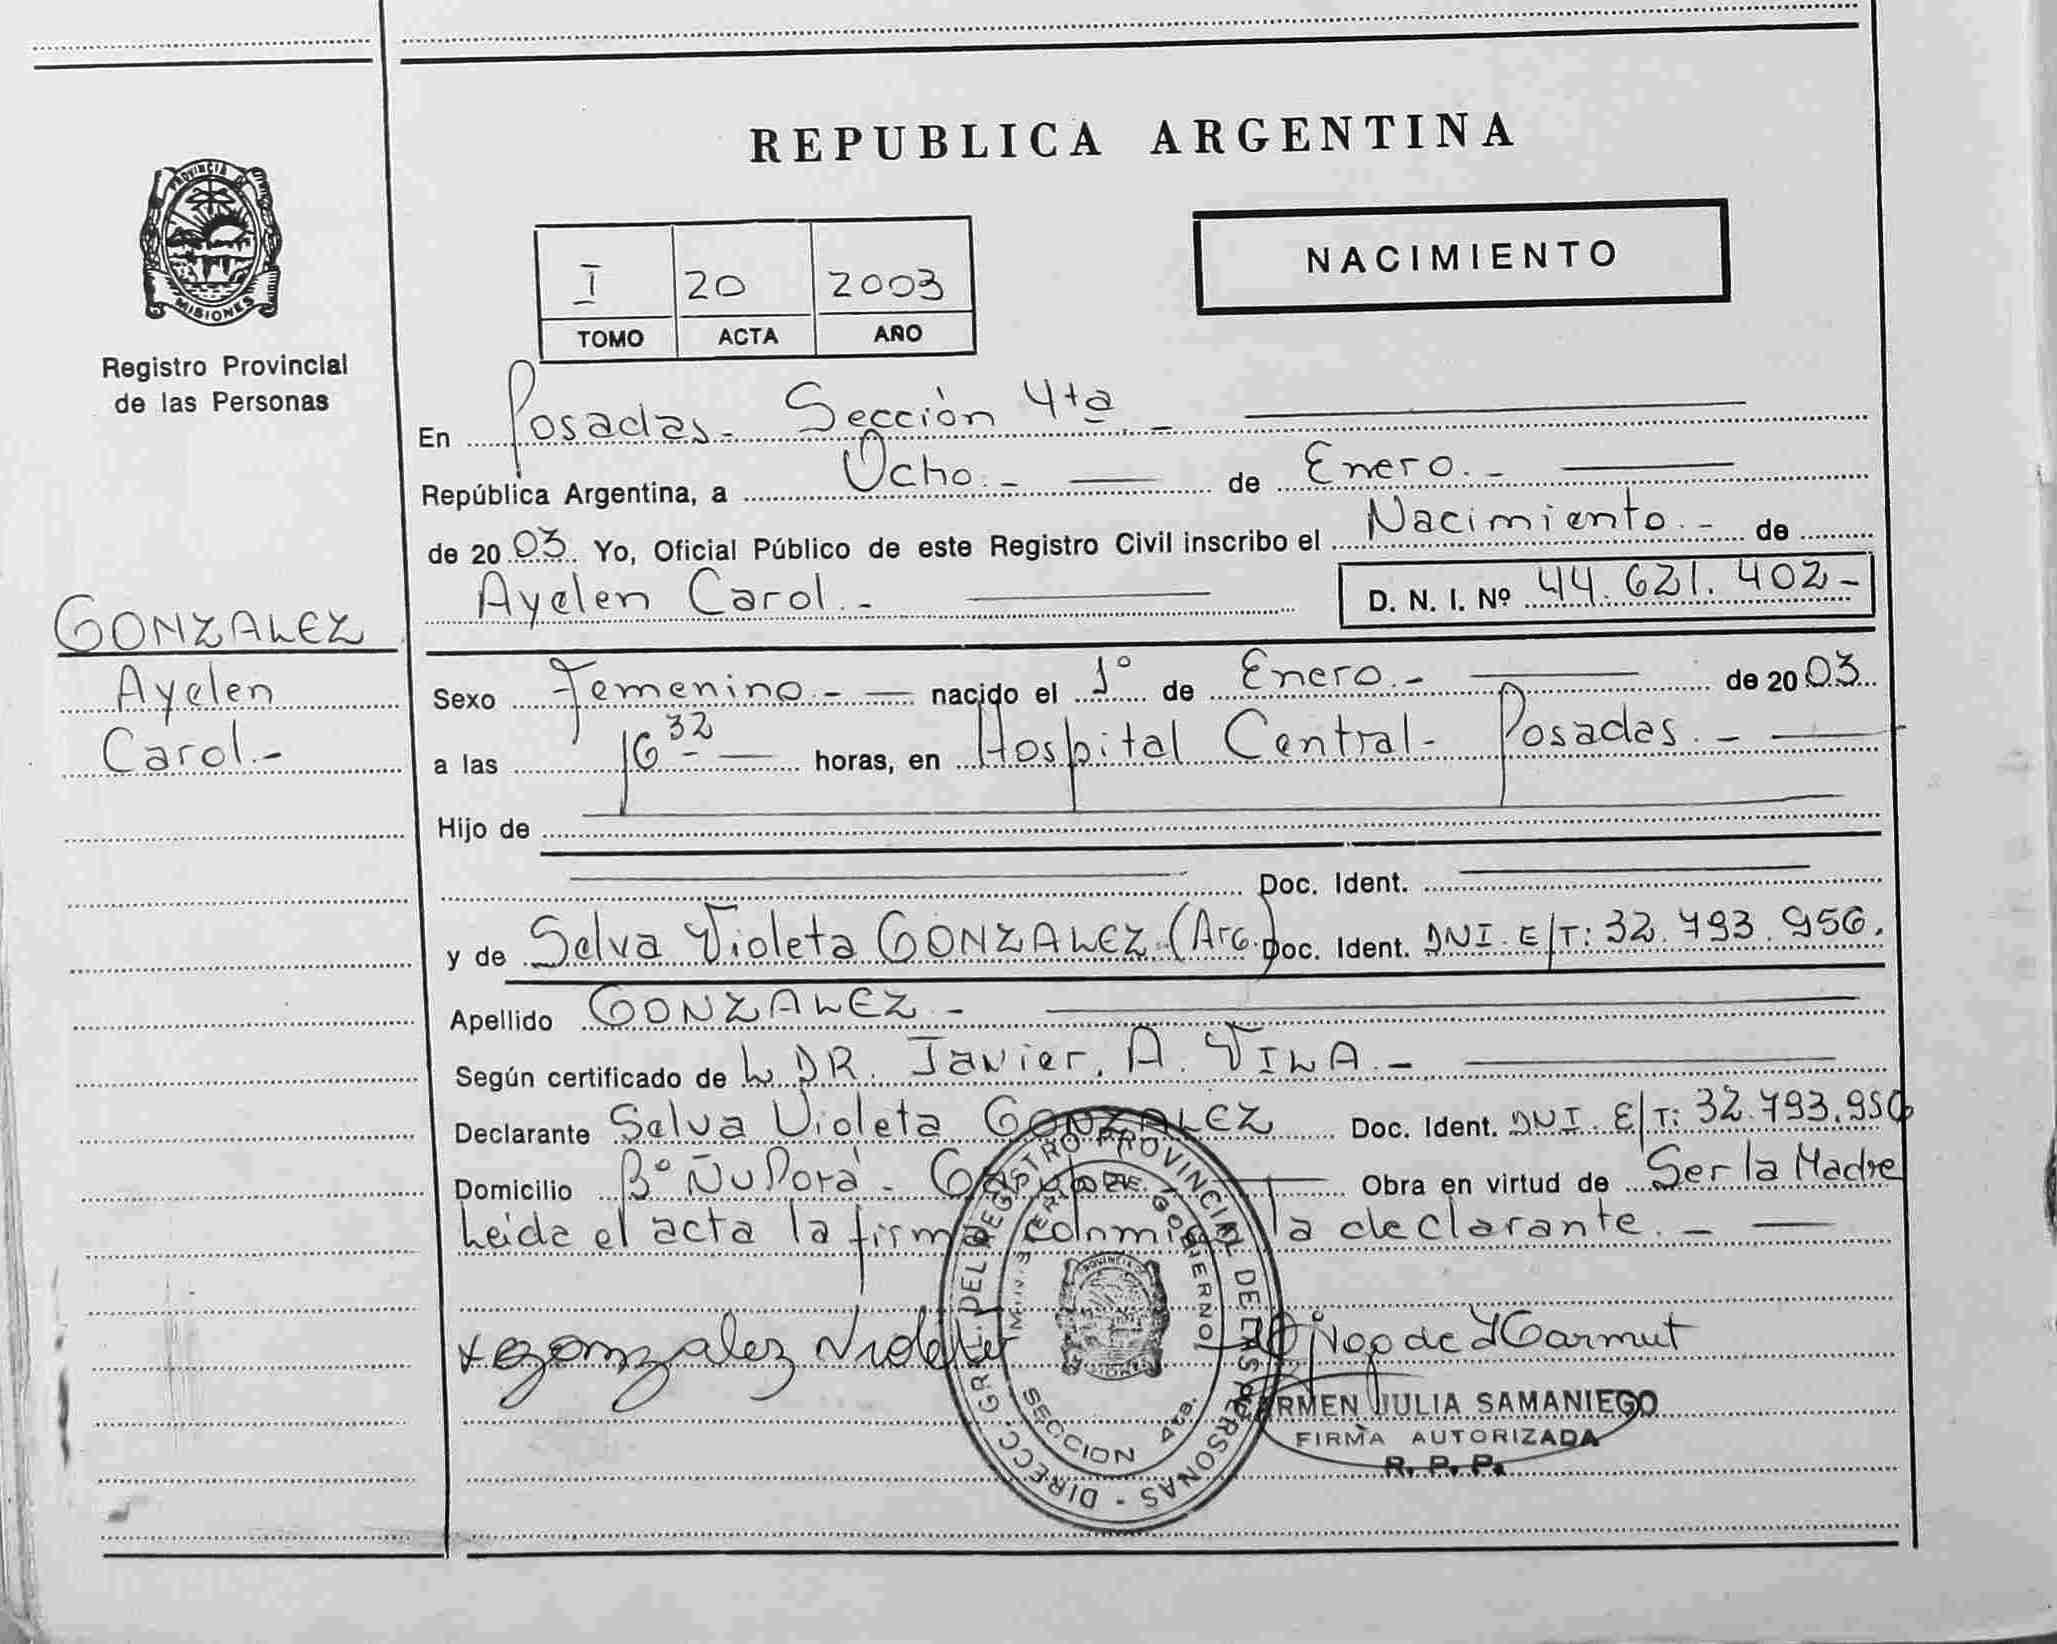 REPUBLICA ARGENTINA
PROVINCIA DE
MISIONES
Registro Provincial
de las Personas
I 20 2003
TOMO ACTA AÑO
NACIMIENTO
En Posadas.- Sección 4ta.-
República Argentina, a Ocho.- de Enero.-
de 2003. Yo, Oficial Público de este Registro Civil inscribo el Nacimiento.- de
Ayelen Carol.- D. N. I. Nº 44.621.402-
GONZALEZ
Ayelen
Carol.-
Sexo Femenino.- nacido el 1º de Enero.- de 2003.
a las 16 32 horas, en Hospital Central- Posadas.-
Hijo de
Doc. Ident.
y de Selva Violeta GONZALEZ.(Arg.) Doc. Ident. DNI. E/T: 32.793.956.
Apellido GONZALEZ.-
Según certificado de L DR. Javier. A. VILA.-
Declarante Selva Violeta GONZALEZ Doc. Ident. DNI. E/T: 32.793.956
Domicilio Bº Ñu Porá - Obra en virtud de Ser la Madre
Leida el acta la firma conmigo la declarante.-
x Gonzalez Violeta
DIRECC. GRAL. DEL REGISTRO PROVINCIAL DE LAS PERSONAS -
MINISTERIO DE GOBIERNO
SECCION 4ta.
de Harmut
CARMEN JULIA SAMANIEGO
FIRMA AUTORIZADA
R. P. P.